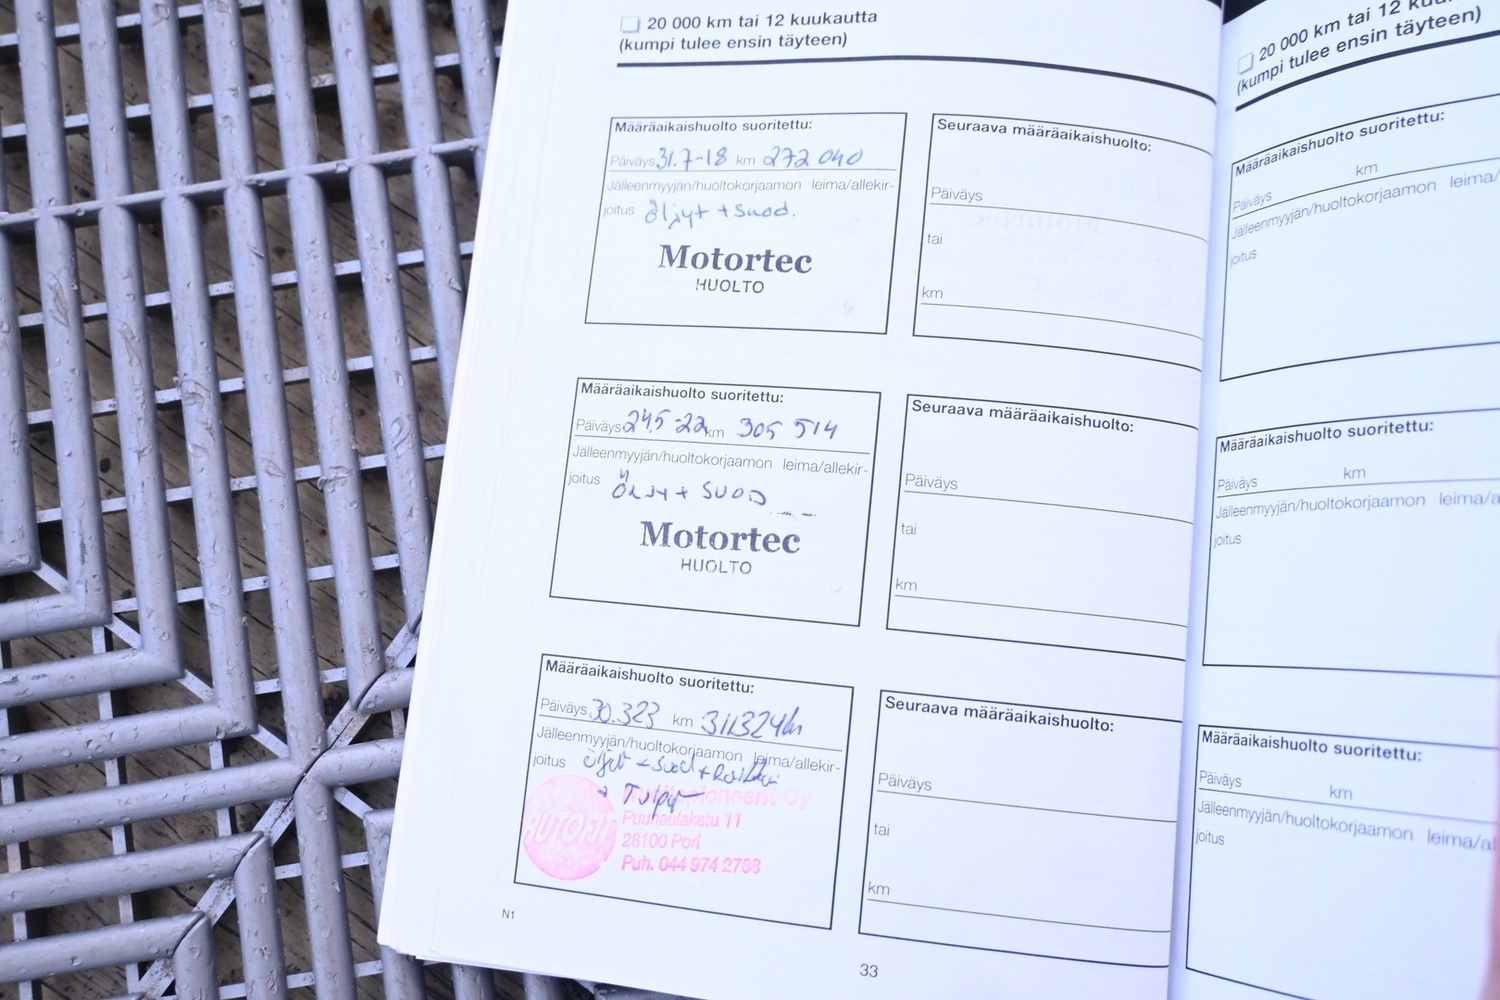 20 000 km tai 12 kuukautta
(kumpi tulee ensin täyteen)
Määräaikaishuolto suoritettu:
Päiväys 31.7-18 km 272 040
Jälleenmyyjän/huoltokorjaamon leima/allekir-
joitus öljyt + suod.
Motortec
HUOLTO
Seuraava määräaikaishuolto:
Päiväys
tai
km
Määräaikaishuolto suoritettu:
Päiväys 24.5-22 km 305 514
Jälleenmyyjän/huoltokorjaamon leima/allekir-
joitus ÖLJY + SUOD
Motortec
HUOLTO
Seuraava määräaikaishuolto:
Päiväys
tai
km
Määräaikaishuolto suoritettu:
Päiväys 30.323 km 311324km
Jälleenmyyjän/huoltokorjaamon leima/allekir-
joitus öljyt + suod +
+ Tulpat
AUTOFIT
Puuhaulakatu 11
28100 Pori
Puh. 044 974 2788
Seuraava määräaikaishuolto:
Päiväys
tai
km
N1
33
20 000 km tai 12
(kumpi tulee ensin täyteen)
Määräaikaishuolto suoritettu:
Päiväys km
Jälleenmyyjän/huoltokorjaamon leima/
joitus
Määräaikaishuolto suoritettu:
Päiväys km
Jälleenmyyjän/huoltokorjaamon leima/a
joitus
Määräaikaishuolto suoritettu:
Päiväys km
Jälleenmyyjän/huoltokorjaamon leima/al
joitus